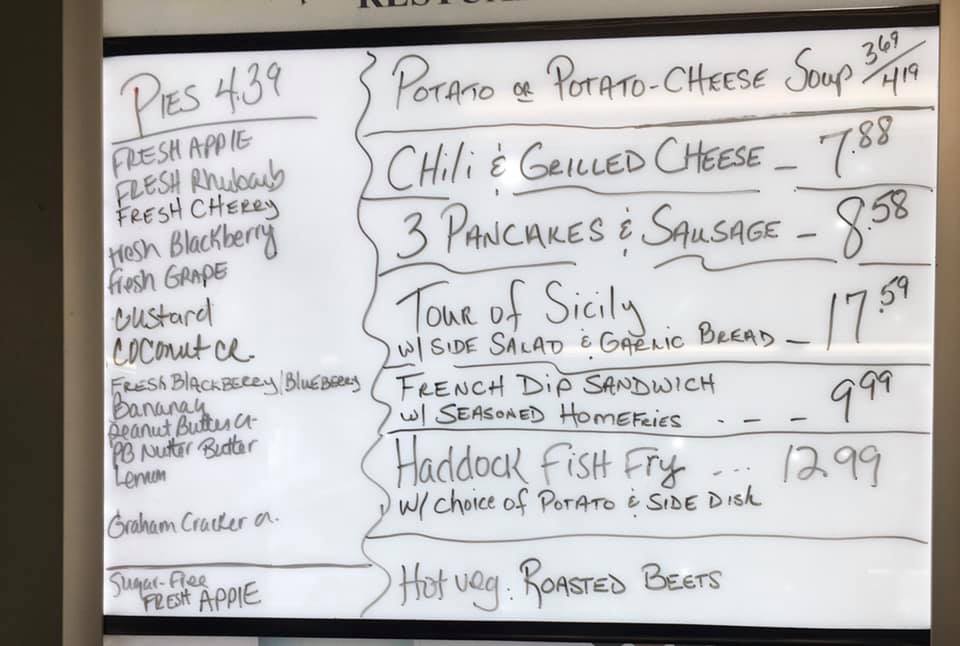 PIES 4.39
FRESH APPIE
FRESH Rhubaub
FRESH CHERRY
Fresh Blackberry
fresh GRAPE
Custard
COConut CR.
FRESH BLACKBERRY/BLUEBERRY
Banana
Peanut Butter Cr.
PB Nutter Butter
Lemon
Graham Cracker Cr.
Sugar-Free
FRESH APPIE
POTATO OR POTATO-CHEESE Soup 369/419
CHili & GRILLED CHEESE - 7.88
3 PANCAKES & SAUSAGE - 8.58
TOUR of Sicily
W/ SIDE SALAD & GARLIC BREAD - 17.59
FRENCH DIP SANDWICH
W/ SEASONED HOMEFRIES . - - 999
HADDOCK FISH FRY ... 12.99
W/ Choice of POTATO & SIDE DISH
Hot veg: ROASTED BEETS